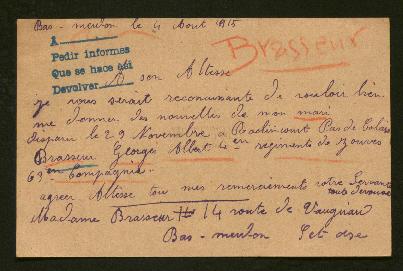 Bas - meudon le 4 Aout 1915
Brasseur
A
Pedir informes
Que se hace así
Devolver
A son Altesse
je vous serait reconnaissante de vouloir bien
me donner des nouvelles de mon mari
disparu le 29 Novembre a Roclincourt Pas de Calais
Brasseur Georges Albert 4 em regiments de Zouaves
69 em Compagnie.
agreer Altesse tou mes remerciements votre Servante
toute dévouée
Madame Brasseur 14 route de Vaugirau
Bas - meudon Set ose